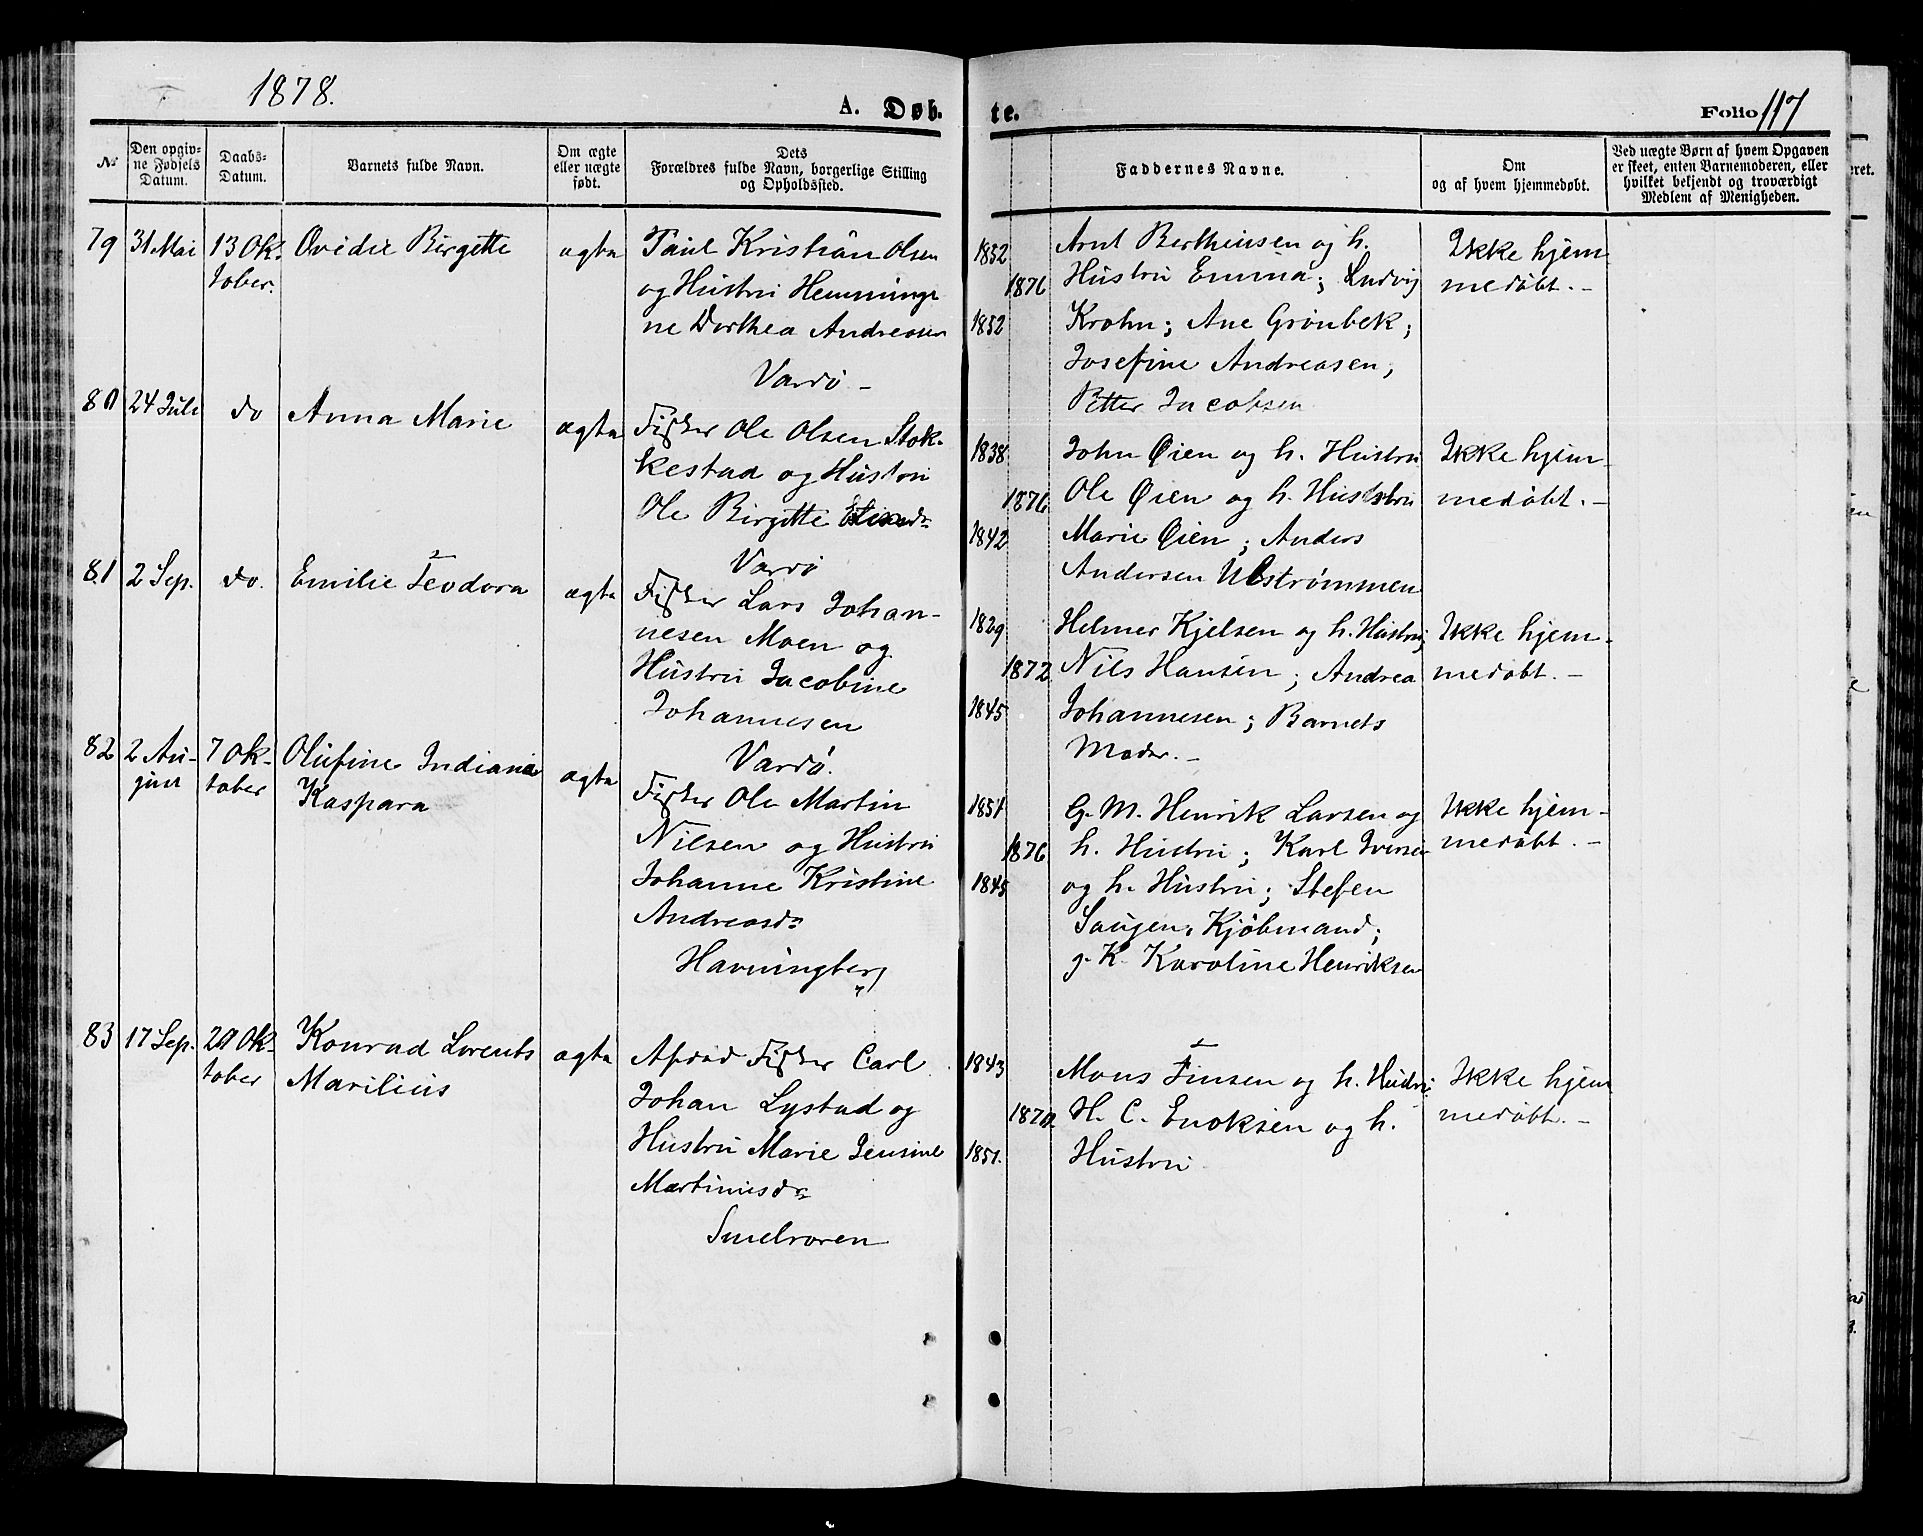 1878.
A. Døb.
te.
Folio 117
No
Den opgiv-
ne Fødsels
Datum.
Daabs-
Datum.
Barnets fulde Navn.
Om ægte
eller uægte
født.
Dets
Forældres fulde Navn, borgerlige Stilling
og Opholdssted.
Faddernes Navne.
Om
og af hvem hjemmedøbt.
Ved uægte Børn af hvem Opgaven
er skeet, enten Barnemoderen, eller
hvilket bekjendt og troværdigt
Medlem af Menigheden.
79 31 Mai 13 Ok-
tober.
Ovidie Birgitte
ægte
Paul Kristian Olsen
og Hustru Hemminge
ne Dorthea Andreasen
Vardö -
1852
1876
1852
Arnt Bertheusen og h.
Hustru Emma; Ludvig
Krohn; Ane Grönbek;
Josefine Andreasen,
Petter Jacobsen
Ikke hjem
medöbt. -
80 24 Juli do
Anna Marie
ægte
Fisker Ole Olsen Stok-
kestad og Hustru
Ole Birgitte
Vardö
1838
1876
1842
John Øien og h. Hustru
Ole Øien og h. Hustru
Marie Øien; Anders
Andersen Ulströmmen
Ikke hjem-
medöbt. -
81 2 Sep. do.
Emilie Teodora
ægte
Fisker Lars Johan-
nesen Moen og
Hustru Jacobine
Johannesen
Vardö.
1829
1872
1845
Helmer Kjelsen og h. Hustru;
Nils Hansen; Andrea
Johannesen; Barnets
Moder. -
Ikke hjem-
medöbt. -
82 2 Au-
gust
7 Ok-
tober
Olufine Indiana
Kaspara
ægte
Fisker Ole Martin
Nilsen og Hustru
Johanne Kristine
Andreasdr
Havningberg
1851
1876
1845
G. M. Henrik Larsen og
h. Hustru; Karl Iversen
og h. Hustru; Stefen
Kjöbmand;
g. K. Karoline Henriksen
Ikke hjem-
medöbt. -
83 17 Sep. 20 Ok-
tober
Konrad Lorents
Marilius
ægte
Fisker Carl
Johan Lystad og
Hustru Marie Jensine
Martinusdr
Smelroren
1843
1870.
1851.
Mons Finsen og h. Hustru;
H. C. Enoksen og h.
Hustru
Ikke hjem
medöbt. -